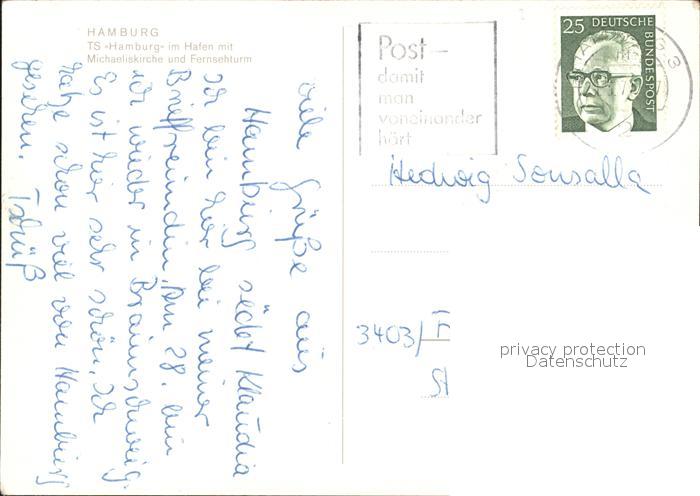 HAMBURG
TS »Hamburg« im Hafen mit
Michaeliskirche und Fernsehturm
Post-
damit
man
voneinander
hört
25 DEUTSCHE
BUNDESPOST
Hedwig Sonsalla
3403/F
St
privacy protection
Datenschutz
viele Grüße aus
Hamburg sendet Klaudia
Ich bin hier bei meiner
Brieffreundin. Am 28. bin
ich wieder in Braunschweig.
Es ist hier sehr schön. Ich
habe schon viel von Hamburg
gesehen. Tschüß